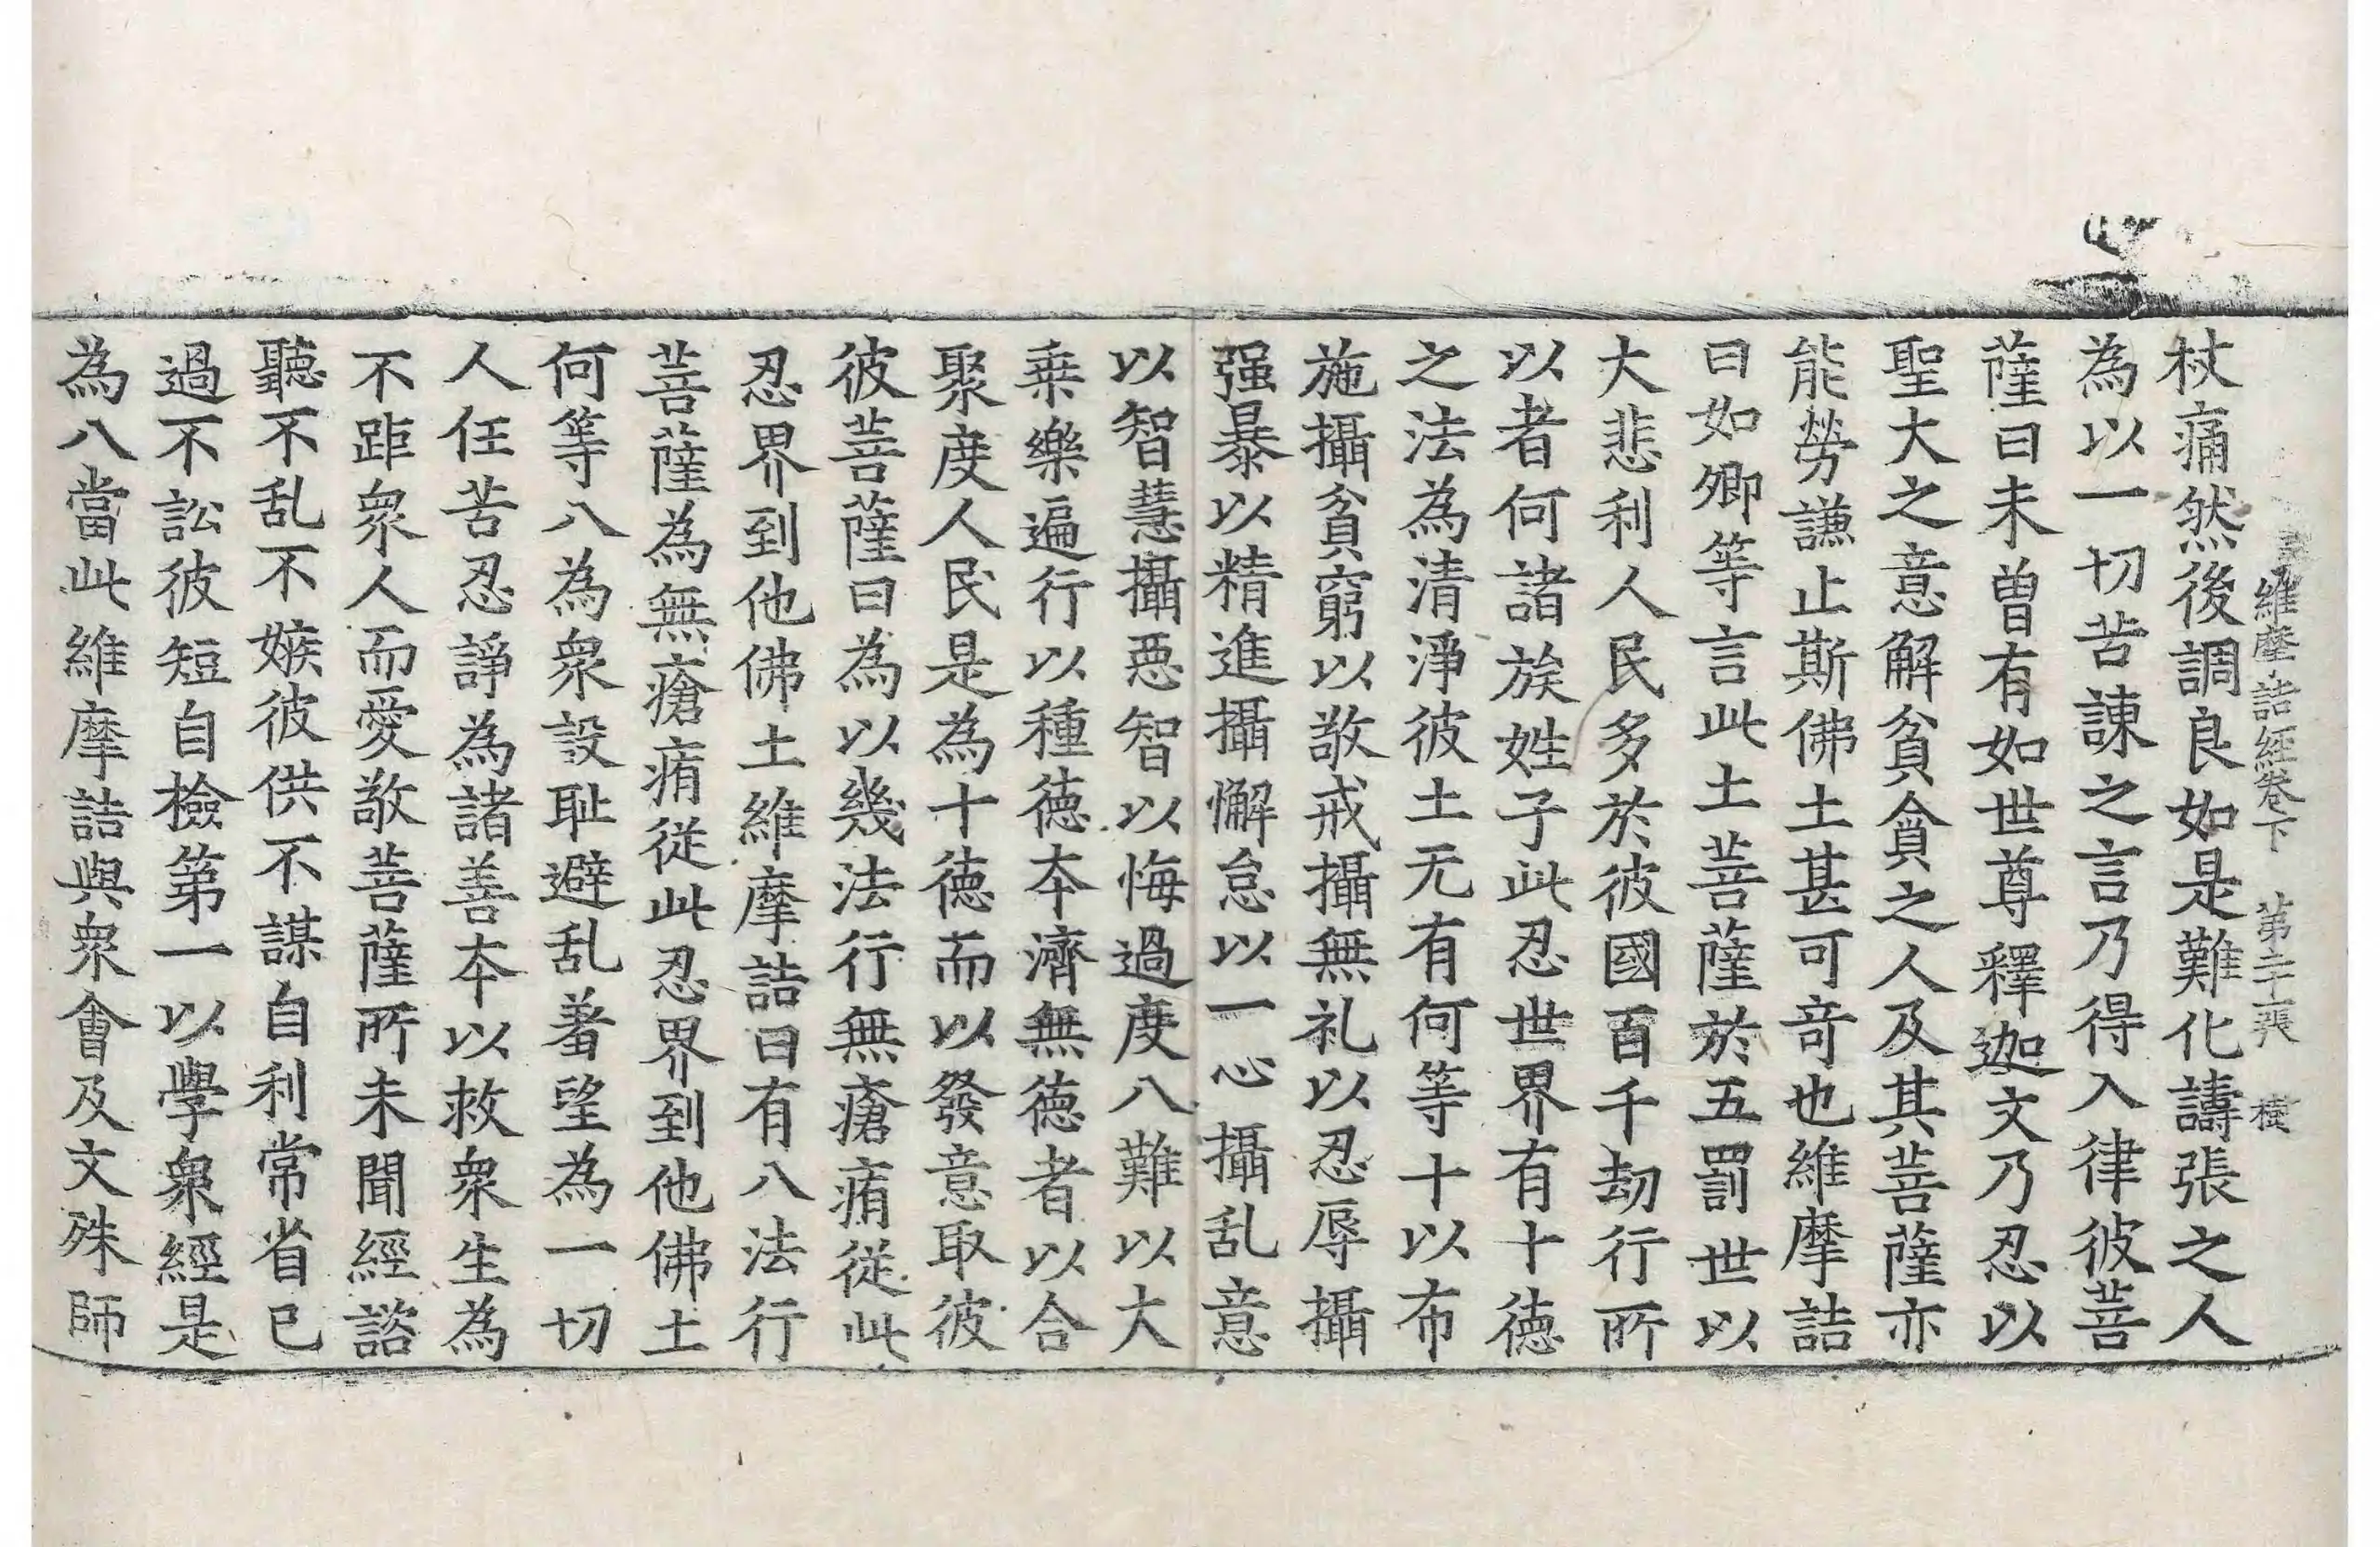 維摩詰經卷下 第二十張 樹
杖痛然後調良如是難化譸張之人
為以一切苦諫之言乃得入律彼菩
薩曰未曾有如世尊釋迦文乃忍以
聖大之意解貧貪之人及其菩薩亦
能勞謙止斯佛土甚可奇也維摩詰
曰如卿等言此土菩薩於五罰世以
大悲利人民多於彼國百千劫行所
以者何諸族姓子此忍世界有十德
之法為清淨彼土无有何等十以布
施攝貧窮以敬戒攝無礼以忍辱攝
强暴以精進攝懈怠以一心攝乱意
以智慧攝惡智以悔過度八難以大
乗樂遍行以種德本濟無德者以合
聚度人民是為十德而以發意取彼
彼菩薩曰為以幾法行無瘡痏從此
忍界到他佛土維摩詰曰有八法行
菩薩為無瘡痏從此忍界到他佛土
何等八為衆設耻避乱著望為一切
人任苦忍諍為諸善本以救衆生為
不距衆人而愛敬菩薩所未聞經諮
聽不乱不嫉彼供不謀自利常省已
過不訟彼短自檢第一以學衆經是
為八當此維摩詰與衆會及文殊師